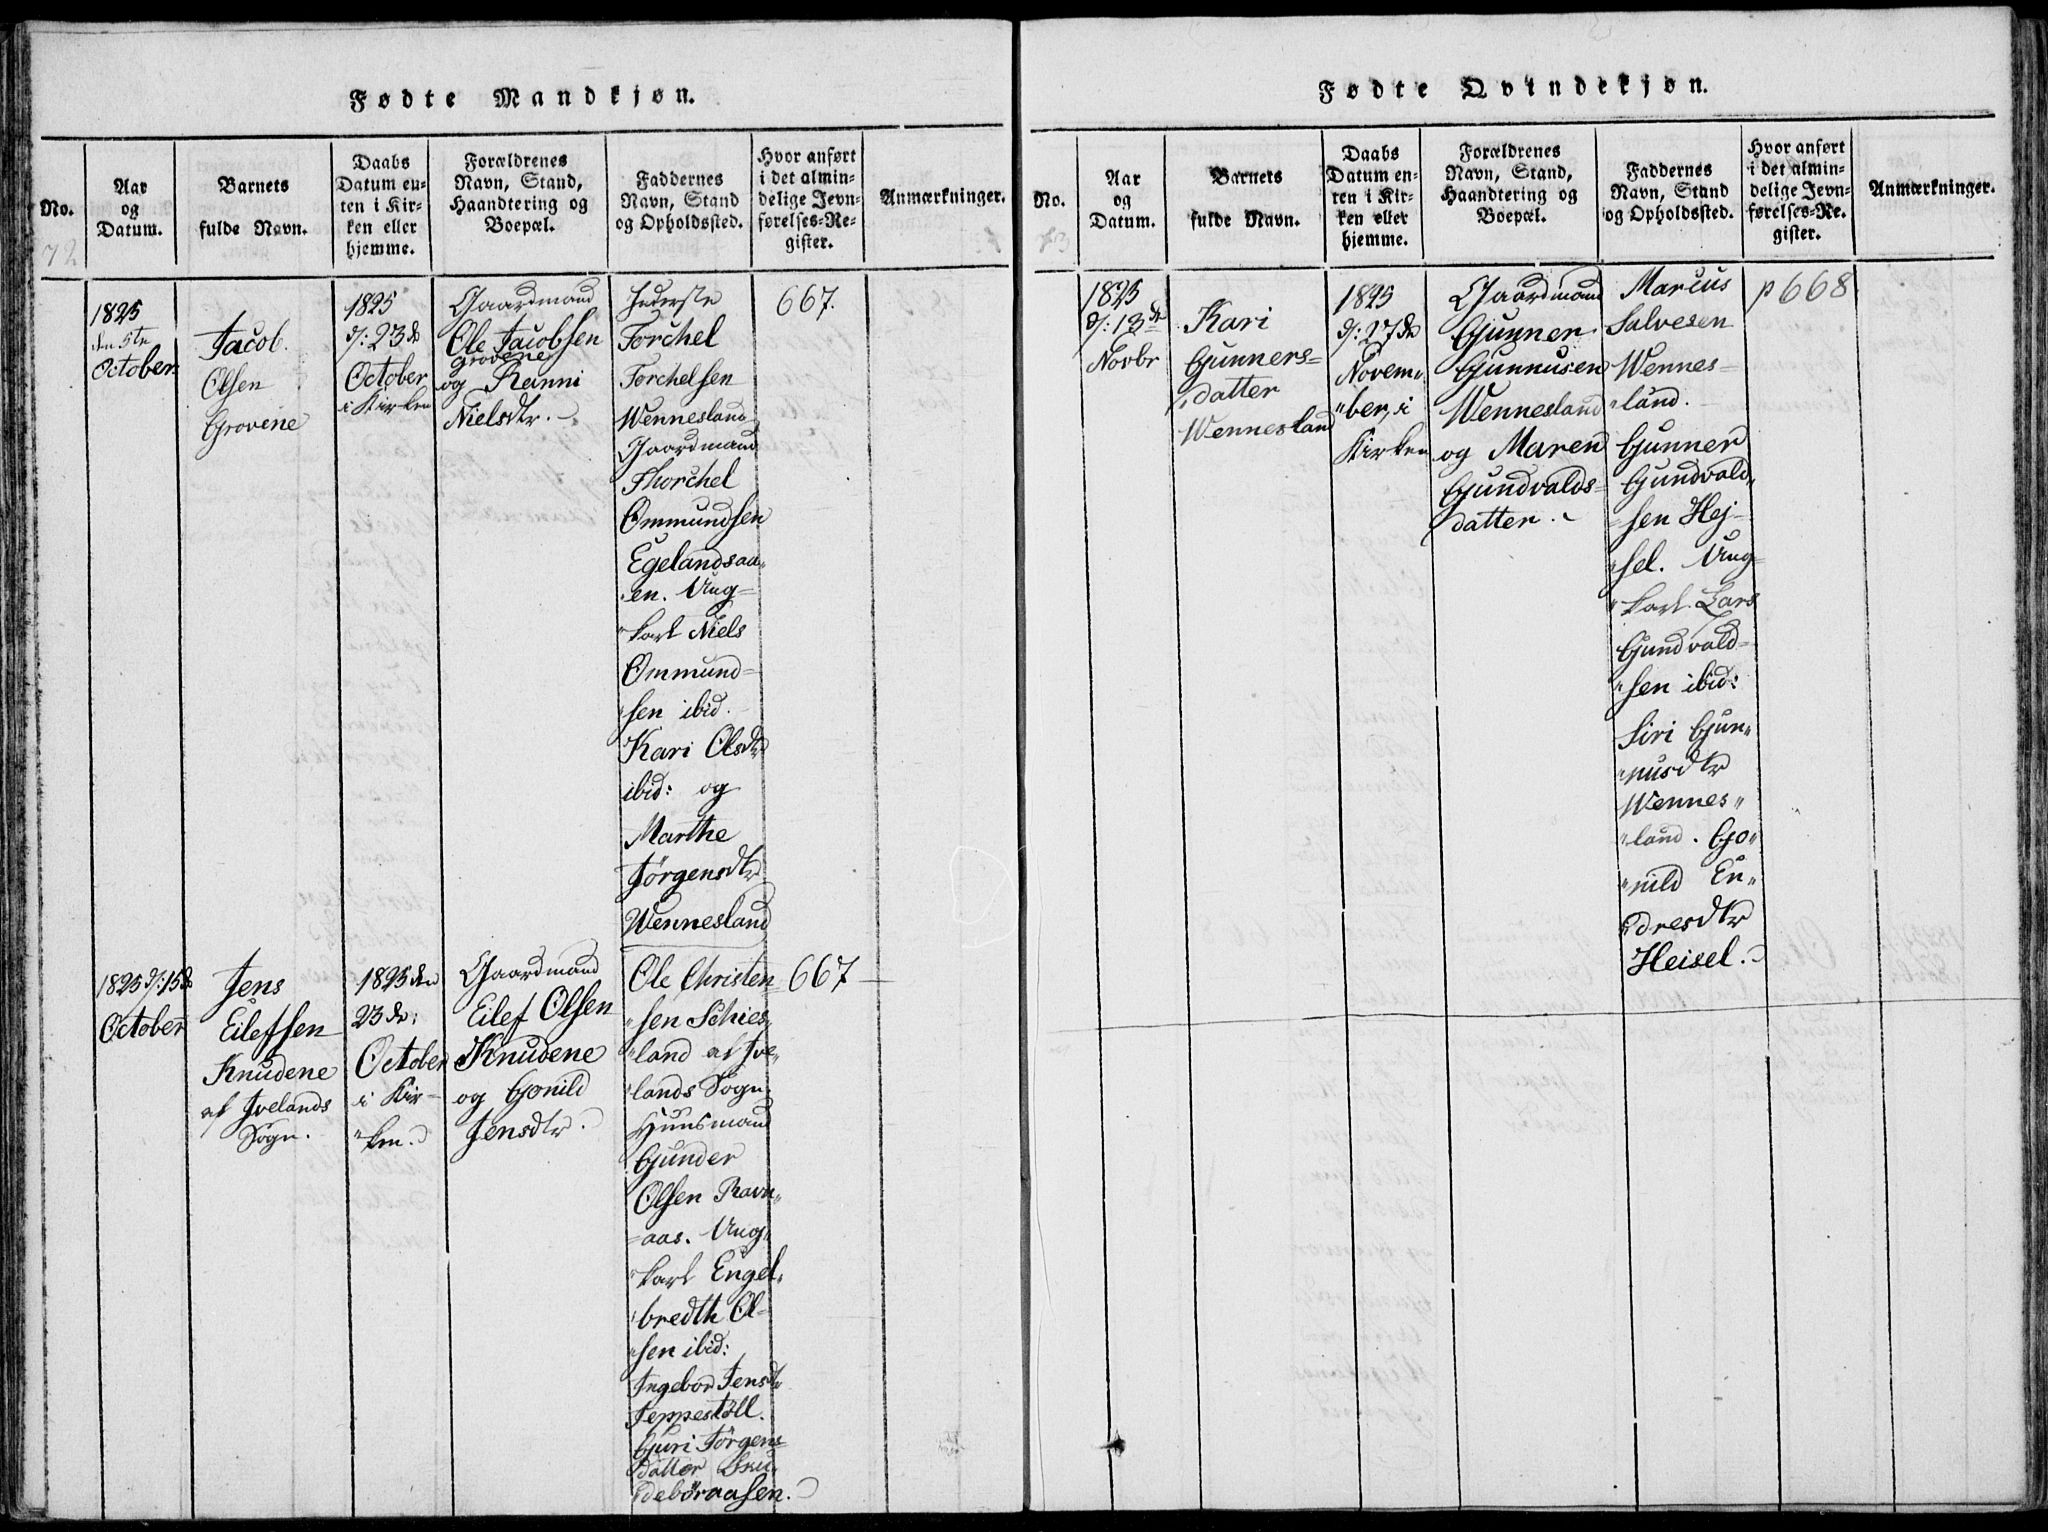 Fødte Mandkjøn.
No.
Aar
og
Datum.
Barnets
fulde Navn.
Daabs
Datum en-
ten i Kir-
ken eller
hjemme.
Forældrenes
Navn, Stand,
Haandtering og
Boepæl.
Faddernes
Navn, Stand
og Opholdssted.
Hvor anført
i det almin-
delige Jevn-
førelses-Re-
gister.
Anmærkninger.
72
1825
den 5te
October
Jacob
Olsen
Grovene
1825
d: 23de
October
i Kirken
Gaardmand
Ole Jacobsen
Grovene
og Ranni
Nielsdtr.
Inderste
Torchel
Torchelsen
Wennesland
Gaardmand
Thorchel
Ommundsen
Egelandsaa-
en. Ung-
karl Niels
Ommund-
sen ibid.
Kari Olsdtr
ibid: og
Marthe
Jörgensdtr
Wennesland
667.
1825 d: 15de
October
Jens
Eilefsen
Knudene
af Ivelands
Sogn.
1825 den
23de:
October
i Kir-
ken.
Gaardmand
Eilef Olsen
Knudene
og Gonild
Jensdtr.
Ole Christen-
sen Schies-
land af Ive-
lands Sogn.
Huusmand
Gunder
Olsen Ravn-
aas. Ung-
karl Engel-
bredth Ol-
sen ibid:
Ingebor Jensdtr
Jeppestöll.
Guri Jörgens-
datter Sku-
deböraasen.
667
Fødte Qvindekjøn.
No.
Aar
og
Datum.
Barnets
fulde Navn.
Daabs
Datum en-
ten i Kir-
ken eller
hjemme.
Forældrenes
Navn, Stand,
Haandtering og
Boepæl.
Faddernes
Navn, Stand
og Opholdssted.
Hvor anført
i det almin-
delige Jevn-
førelses-Re-
gister.
Anmærkninger.
73
1825
d: 13de
Novbr
Kari
Gunners-
datter
Wennesland
1825
d: 27de
Novem-
ber, i
Kirken
Gaardmand
Gunner
Gunnusen
Wennesland
og Maren
Gundvalds-
datter.
Marcus
Salvesen
Wennes-
land.
Gunner
Gundvald-
sen Hej-
sel. Ung-
karl Lars
Gundvald-
sen ibid:
Siri Gun-
nusdtr
Wennes-
land. Go-
nild En-
dresdtr
Heisel.
p 668